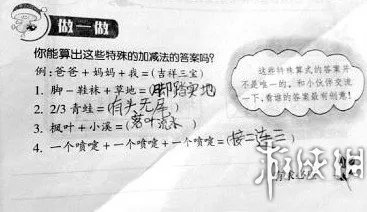 做一做
你能算出这些特殊的加减法的答案吗?
例:爸爸+妈妈+我=(吉祥三宝)
1. 脚-鞋袜+草地=(脚踏实地)
2. 2/3 青蛙=(有头无尾)
3. 枫叶+小溪=(落叶流水)
4. 一个喷嚏+一个喷嚏+一个喷嚏=(接二连三)
这些特殊算式的答案并
不是唯一的。和小伙伴交流
一下,看谁的答案最有创意!
游侠网